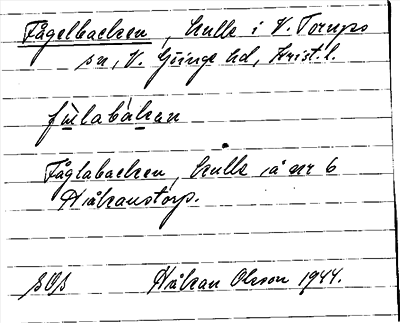 Fågelbacken, kulle i V. Torups
sn, V. Göinge hd, Krist. l.
fu̱labàka̱n
Fåglabacken, kulle å nr 6
Håkanstorp.
SOS Håkan Olsson 1944.